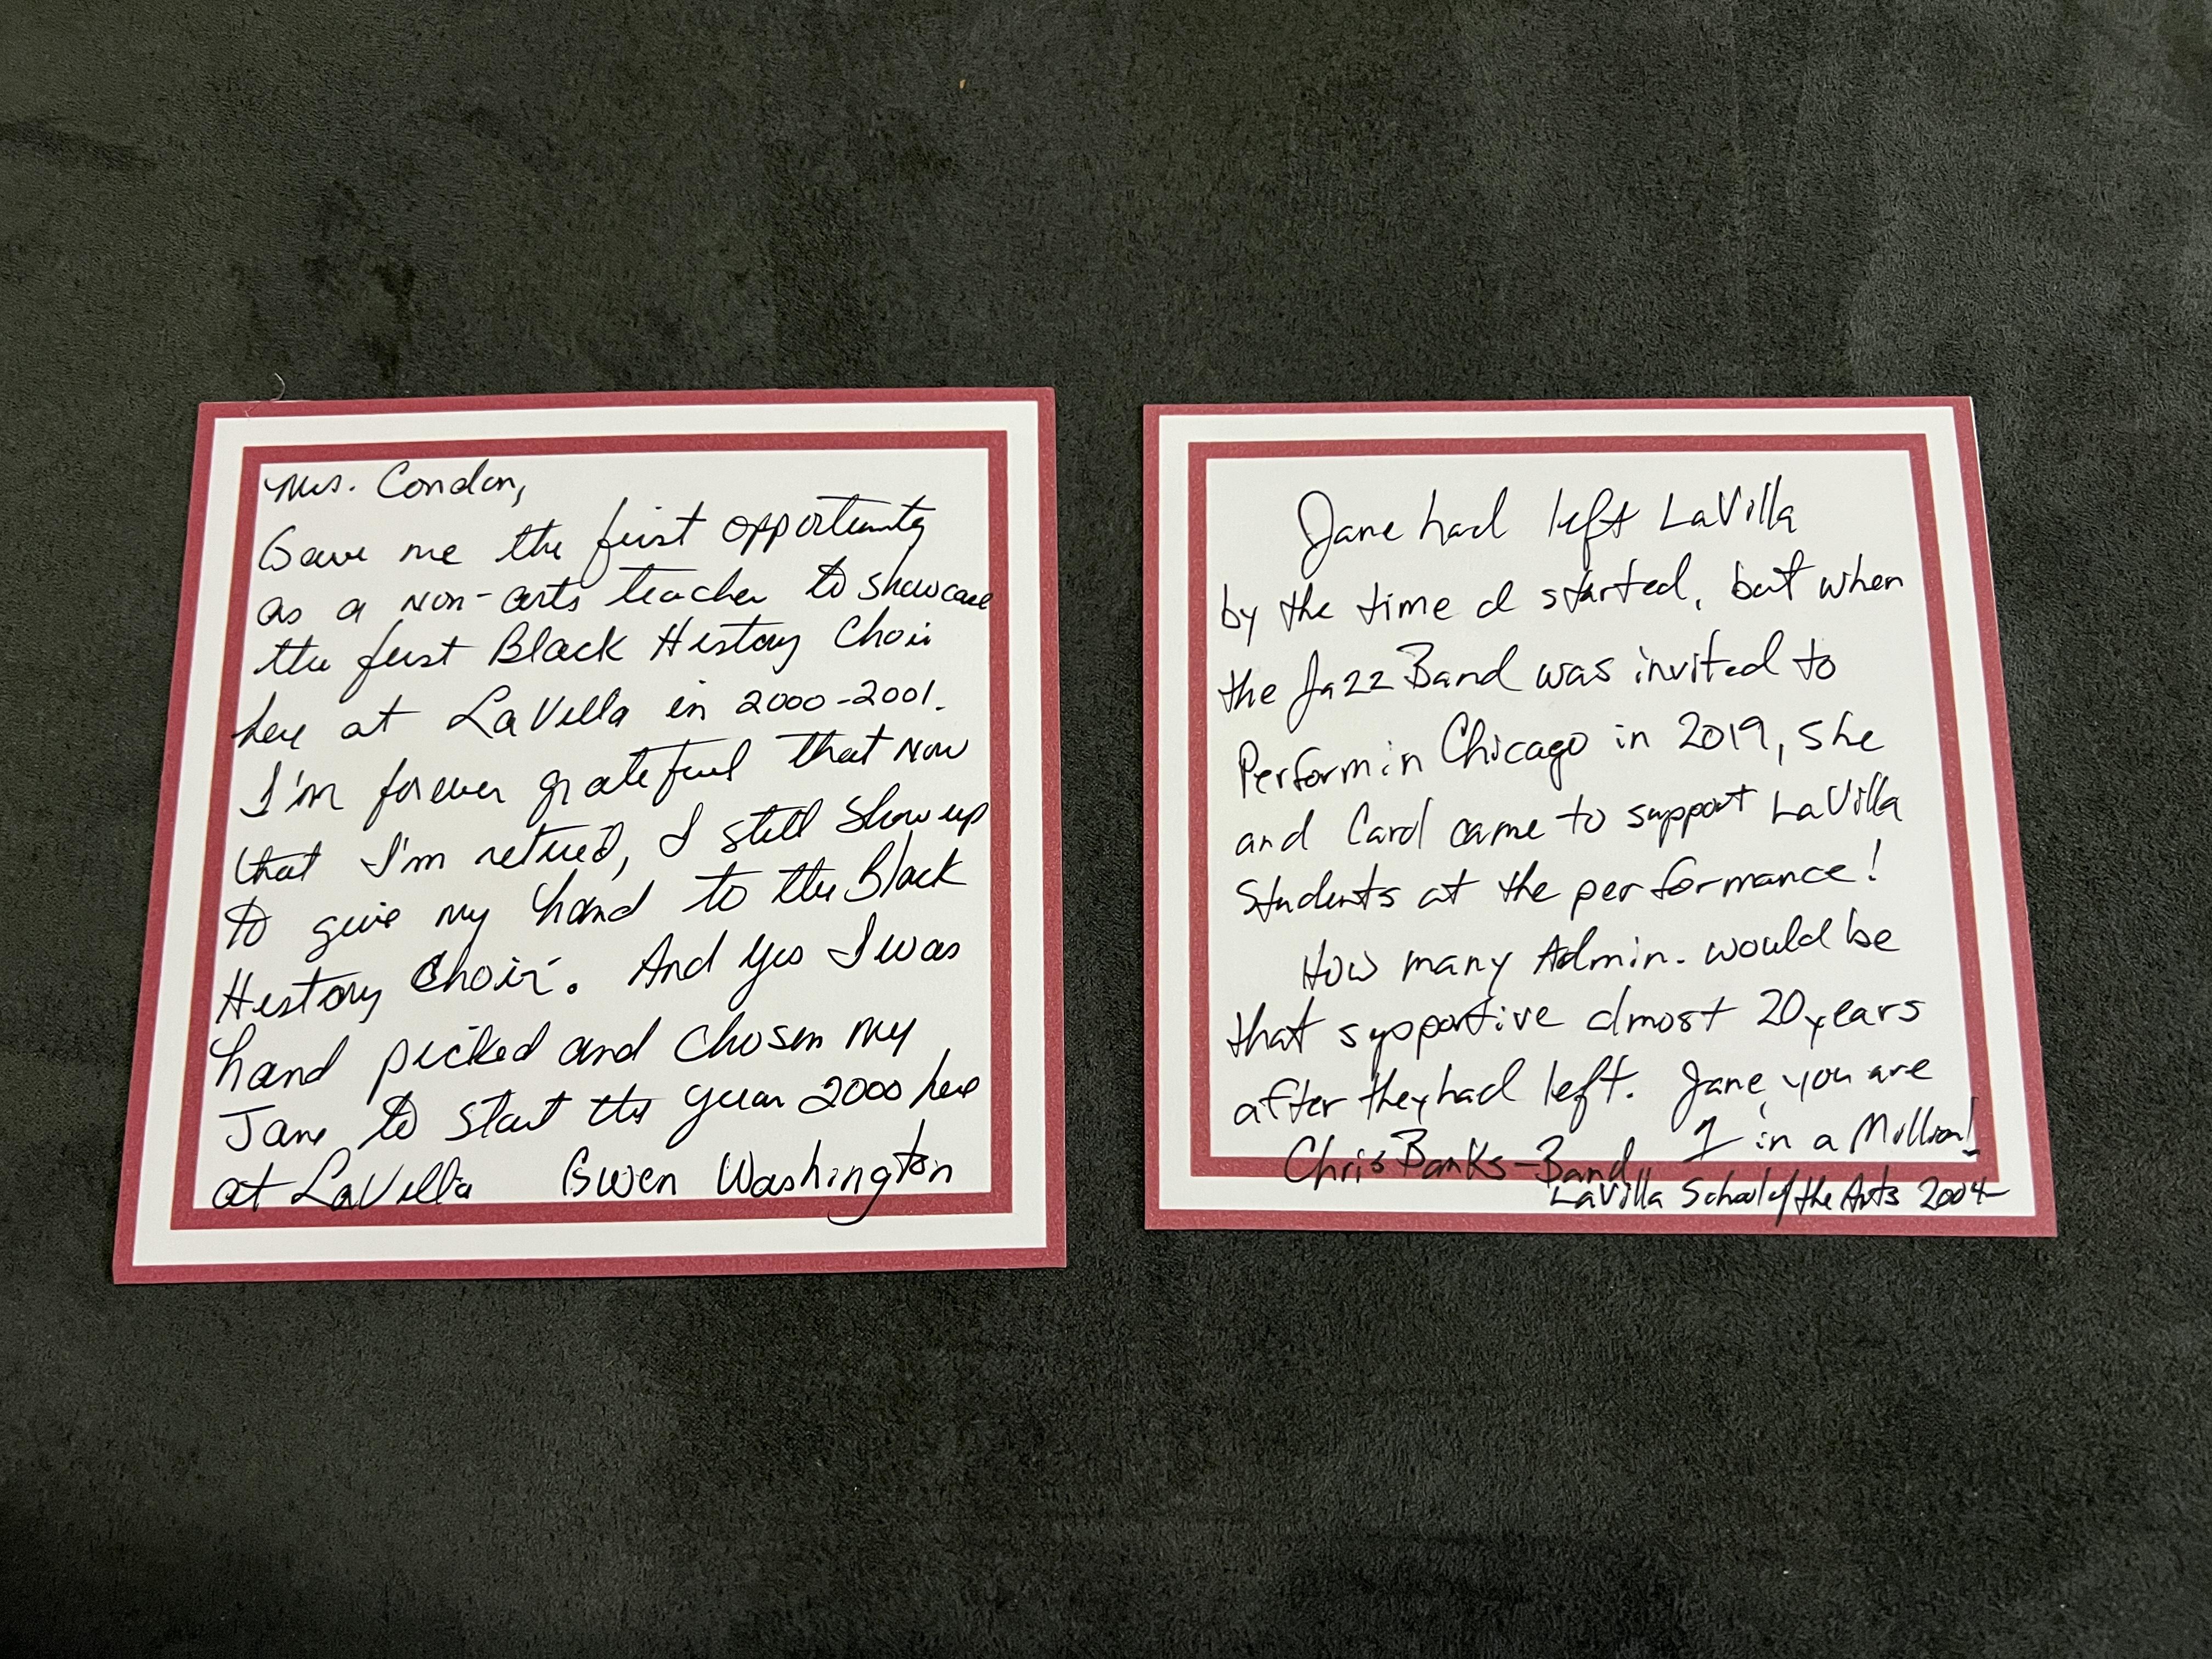 Mrs. Condon,
Gave me the first opportunity
as a non-arts teacher to showcase
the first Black History Choir
here at LaVilla in 2000-2001.
I'm forever grateful that now
that I'm retired, I still show up
to give my hand to the Black
History Choir. And yes I was
hand picked and chosen my
Jane to start the year 2000 here
at LaVilla Gwen Washington
Jane had left LaVilla
by the time I started, but when
the Jazz Band was invited to
Perform in Chicago in 2019, she
and Carol came to support LaVilla
Students at the performance!
How many Admin. would be
that supportive almost 20 years
after they had left. Jane, you are
1 in a Million!
Chris Banks-Band
LaVilla School of the Arts 2004-